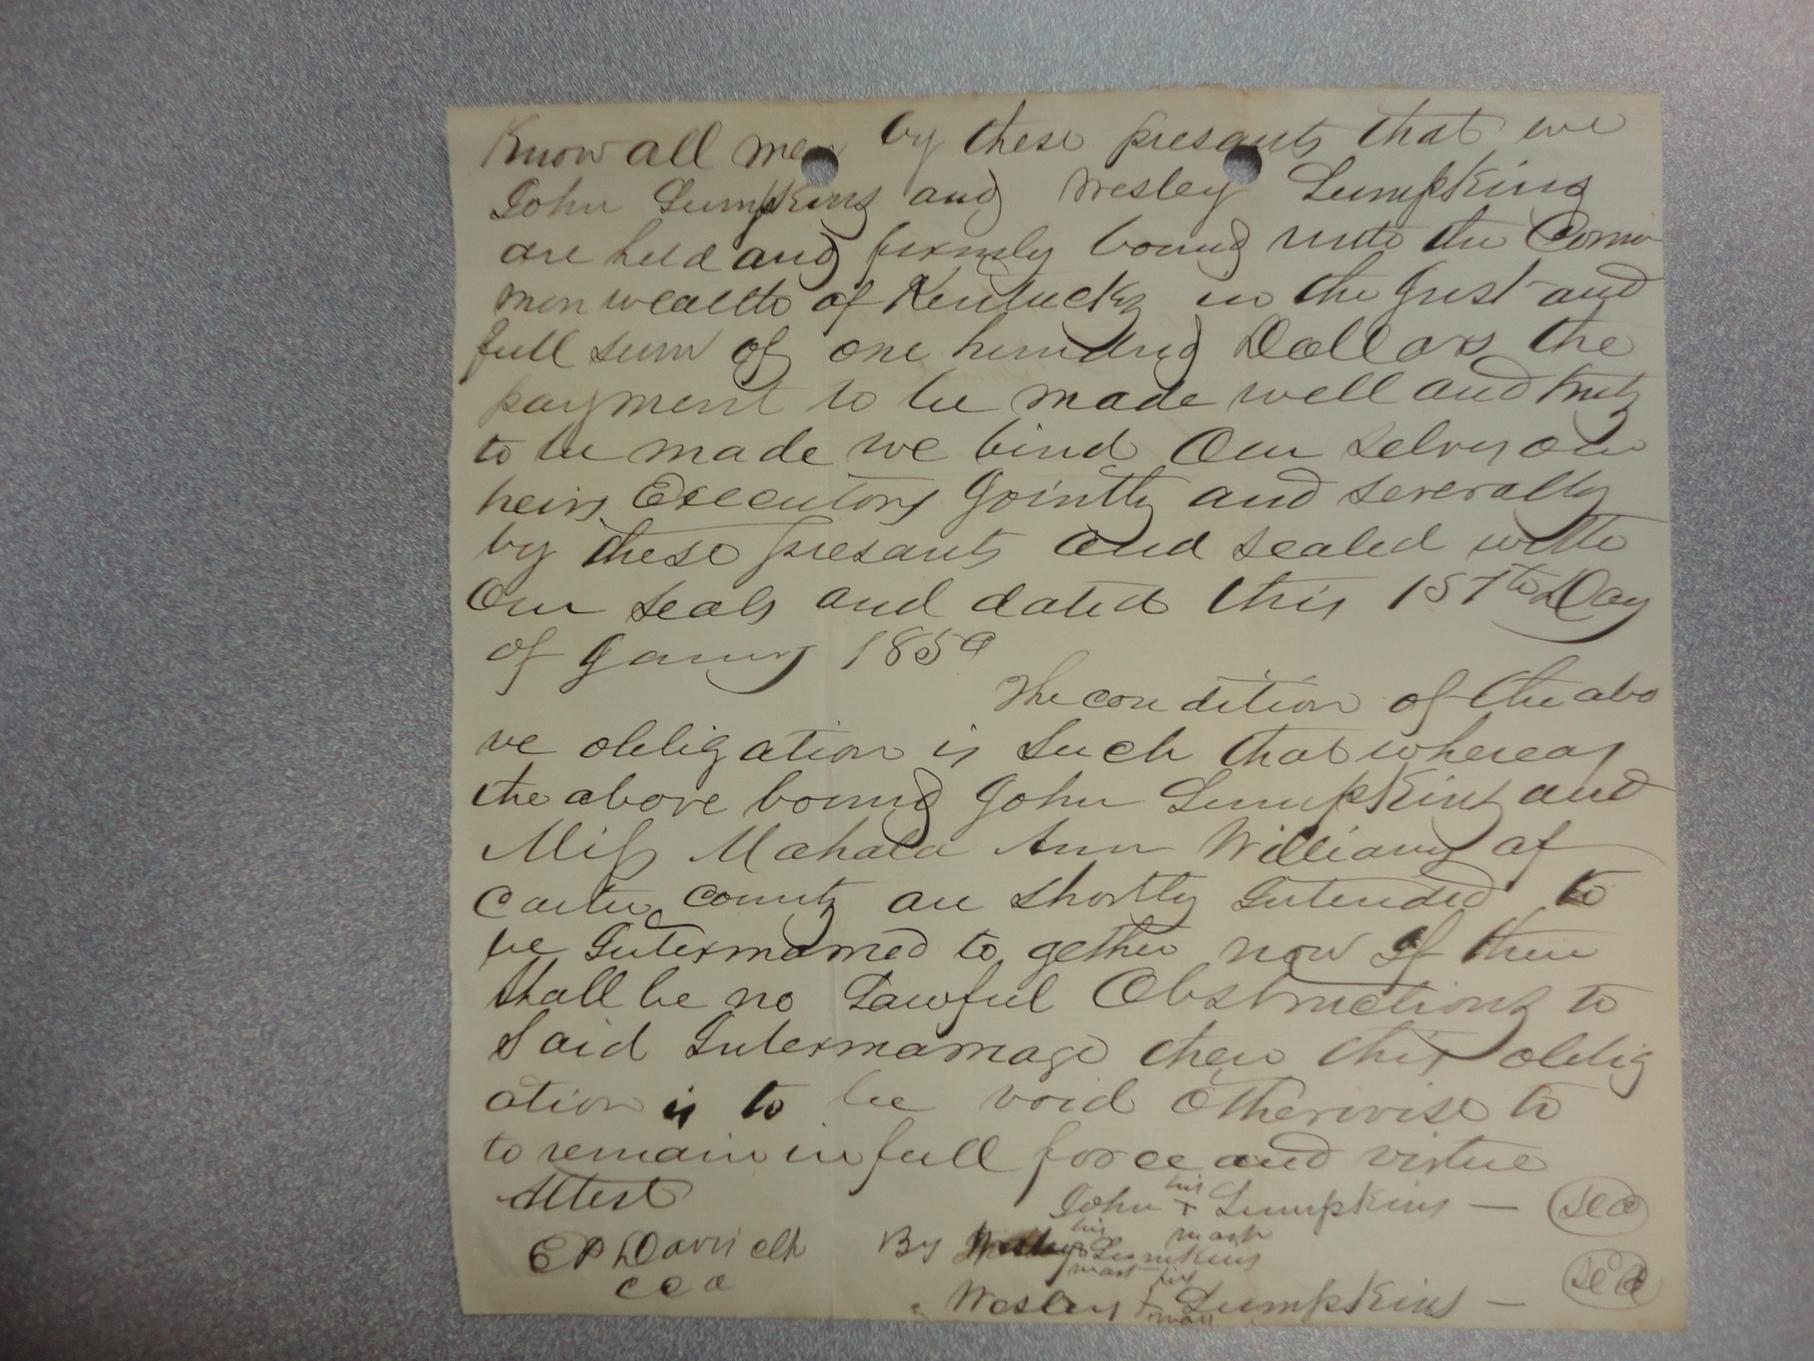 Know all men by these presants that we
John Lumpkins and Wesley Lumpkins
are held and firmly bound unto the Comm
mon wealth of Kentucky in the Just and
full sum of one hundred Dollars the
payment to be made well and truly
to be made we bind Our selves our
heirs Executors Jointly and severally
by these presants and sealed with
Our seals and dated this 15th Day
of Janury 1859
The condition of the abo
ve obligation is Such that whereas
the above bound John Lumpkins and
Miss Mahala Ann Williams of
Carter county are shortly Intended to
be Intermarried to gether now If there
shall be no Lawful Obstructions to
Said Intermarriage then this oblig
ation is to be void Otherwise to
to remain in full force and virtue
Attest
his
John + Lumpkins — Sea
mark
E P Davis clk
C C C
his
By Wesley Lumkins
mark his
Wesley + Lumpkins — Sea
mark